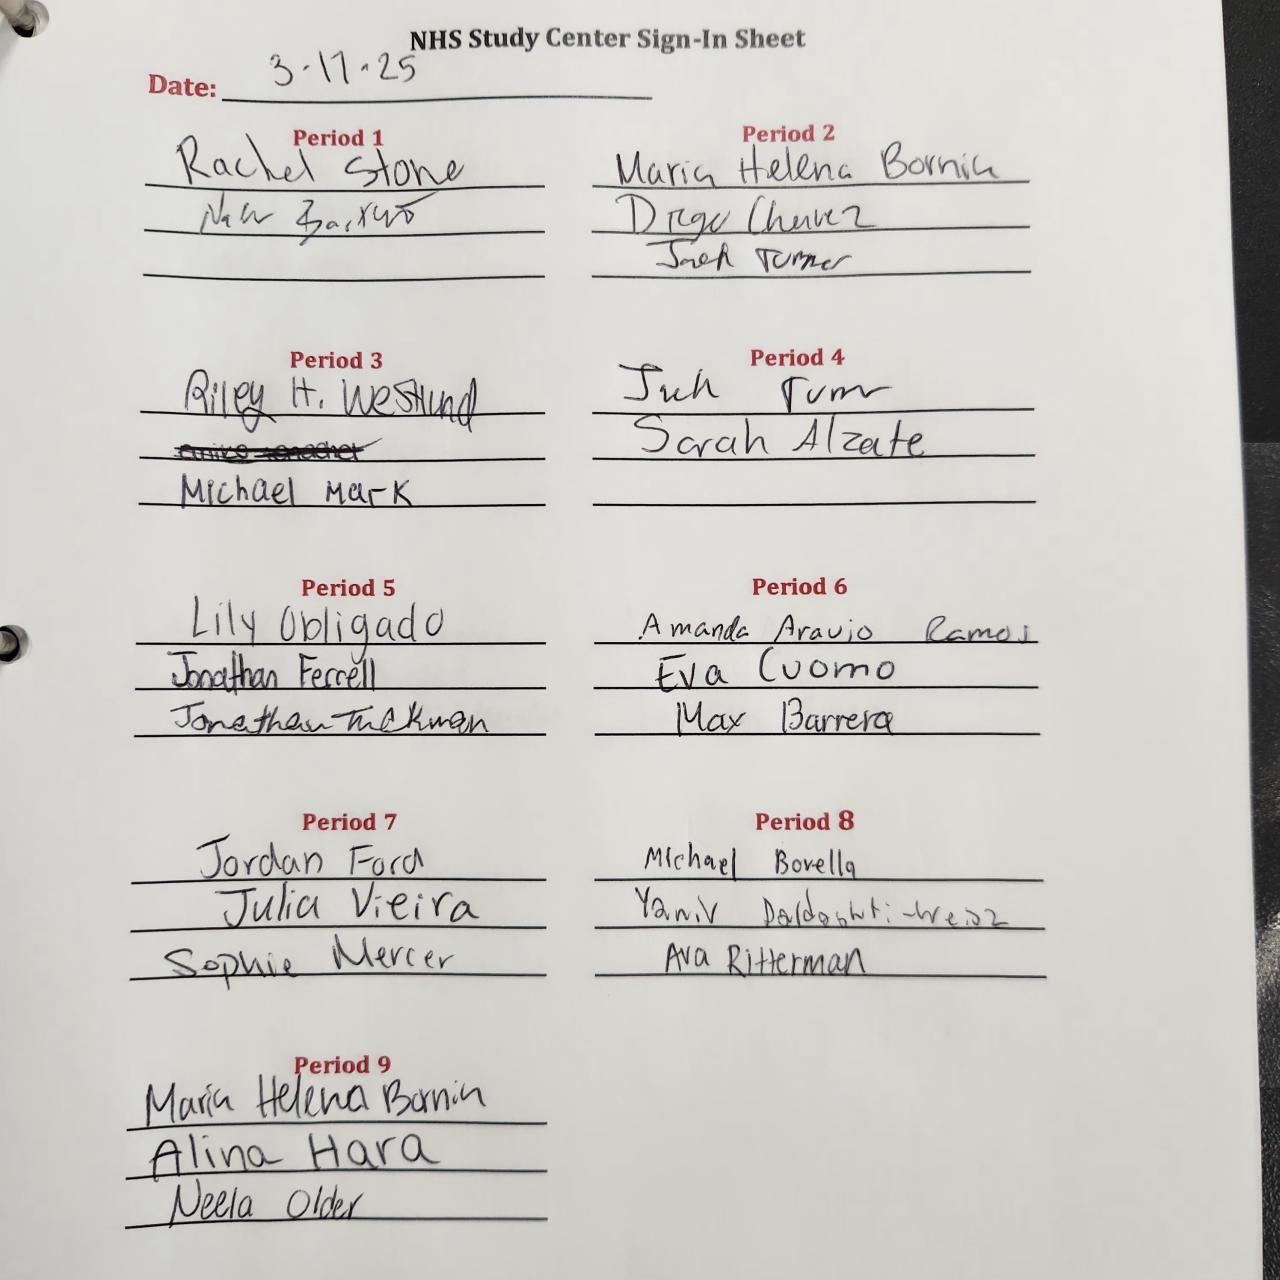 NHS Study Center Sign-In Sheet
Date: 3-17-25
Period 1
Rachel Stone
Period 2
Maria Helena Bornia
Diego Chavez
Jack Turner
Period 3
Riley H. Westlund
Michael Mark
Period 4
Jack Turner
Sarah Alzate
Period 5
Lily Obligado
Jonathan Ferrell
Jonathan Tuckman
Period 6
Amanda Araujo Ramos
Eva Cuomo
Max Barrera
Period 7
Jordan Ford
Julia Vieira
Sophie Mercer
Period 8
Michael Bovella
Yaniv
Ava Ritterman
Period 9
Maria Helena Bornia
Alina Hara
Neela Older